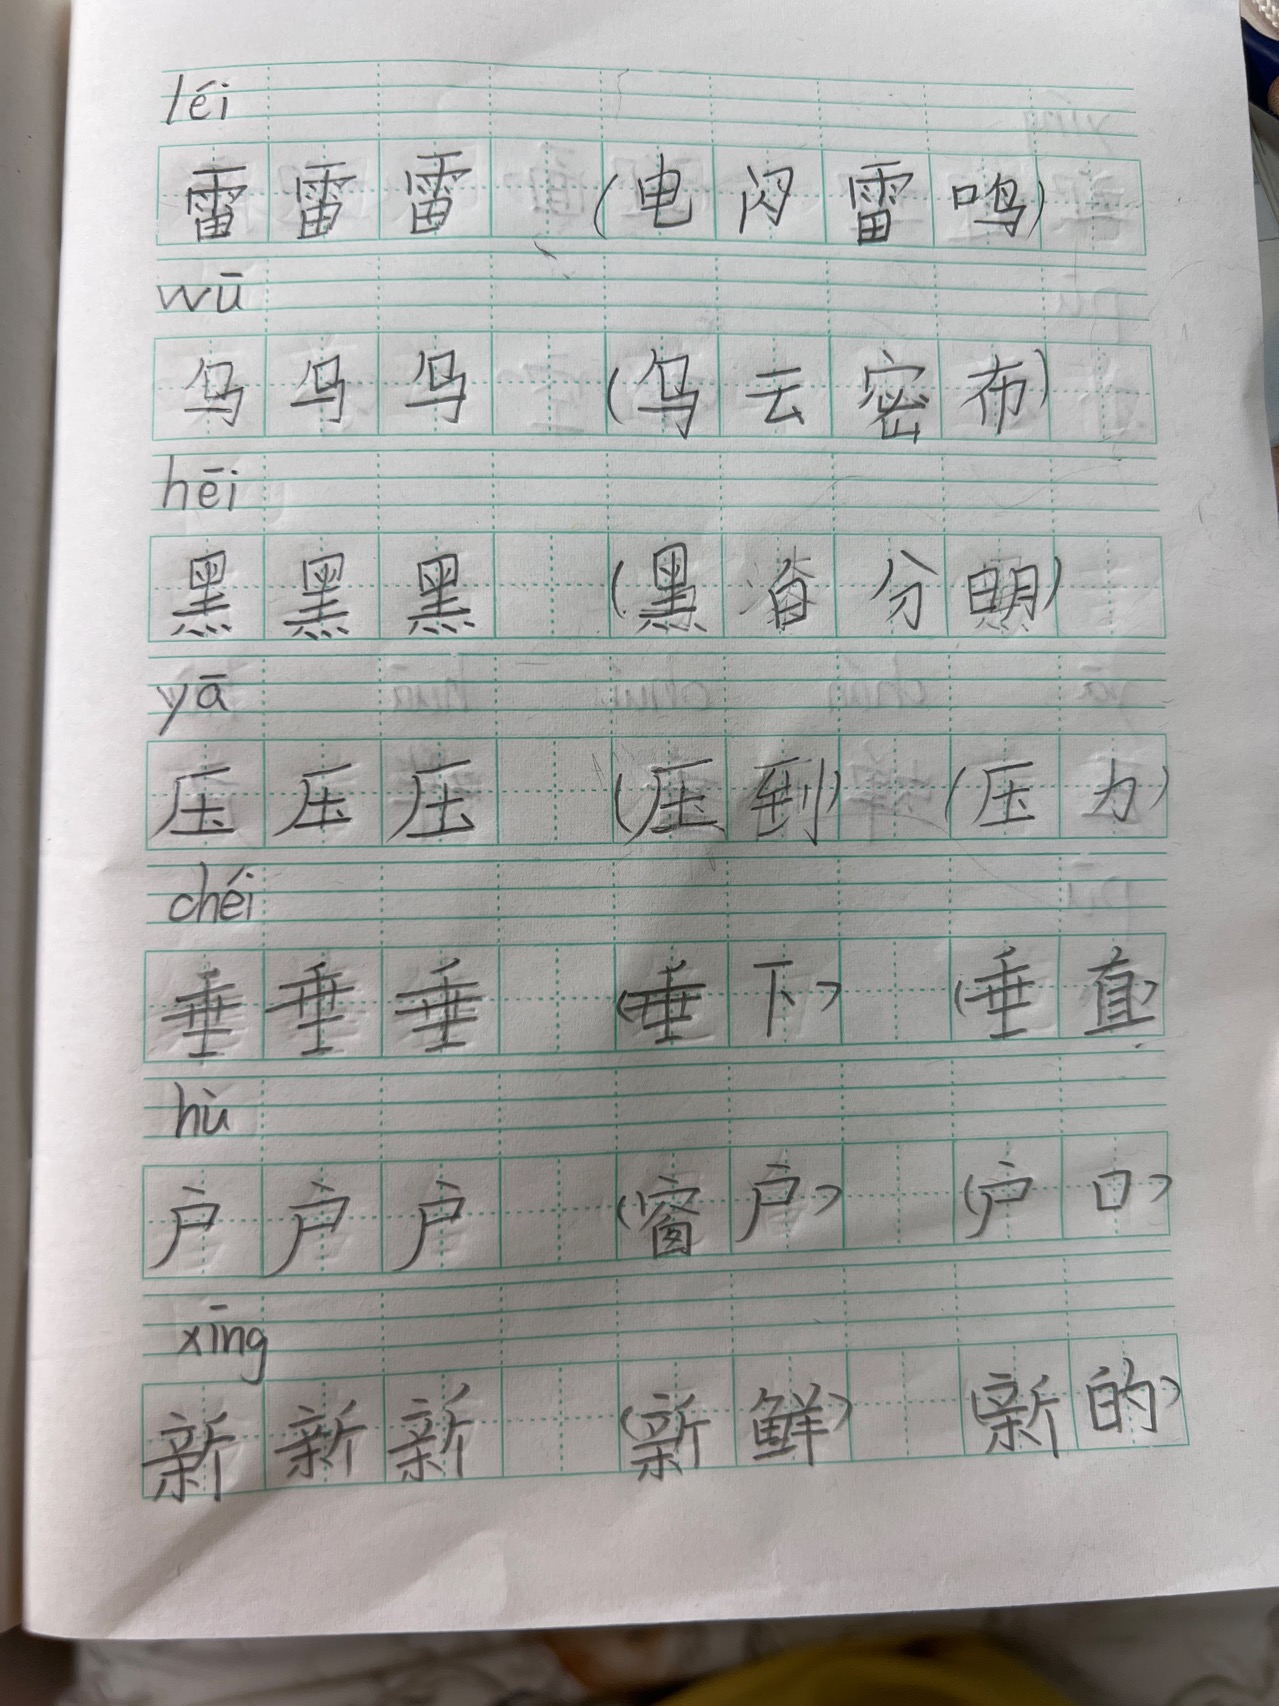 léi
雷雷雷 (电闪雷鸣)
wū
乌乌乌 (乌云密布)
hēi
黑黑黑 (黑白分明)
yā
压压压 (压到) (压力)
chéi
垂垂垂 (垂下) (垂直)
hù
户户户 (窗户) (户口)
xīng
新新新 (新鲜) 新的)